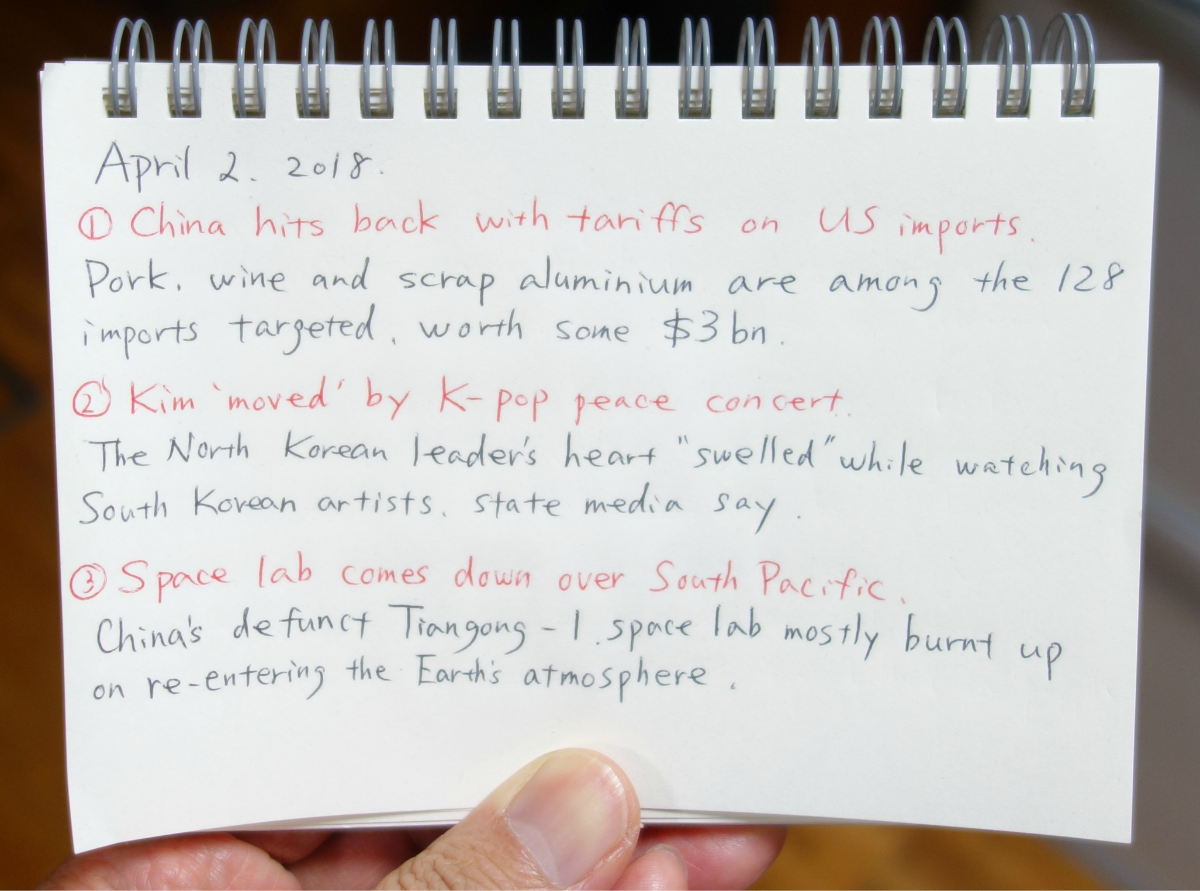 April 2. 2018.
① China hits back with tariffs on US imports.
Pork, wine and scrap aluminium are among the 128
imports targeted, worth some $3bn.
② Kim 'moved' by K-pop peace concert.
The North Korean leader's heart "swelled" while watching
South Korean artists, state media say.
③ Space lab comes down over South Pacific.
China's defunct Tiangong-1 space lab mostly burnt up
on re-entering the Earth's atmosphere.